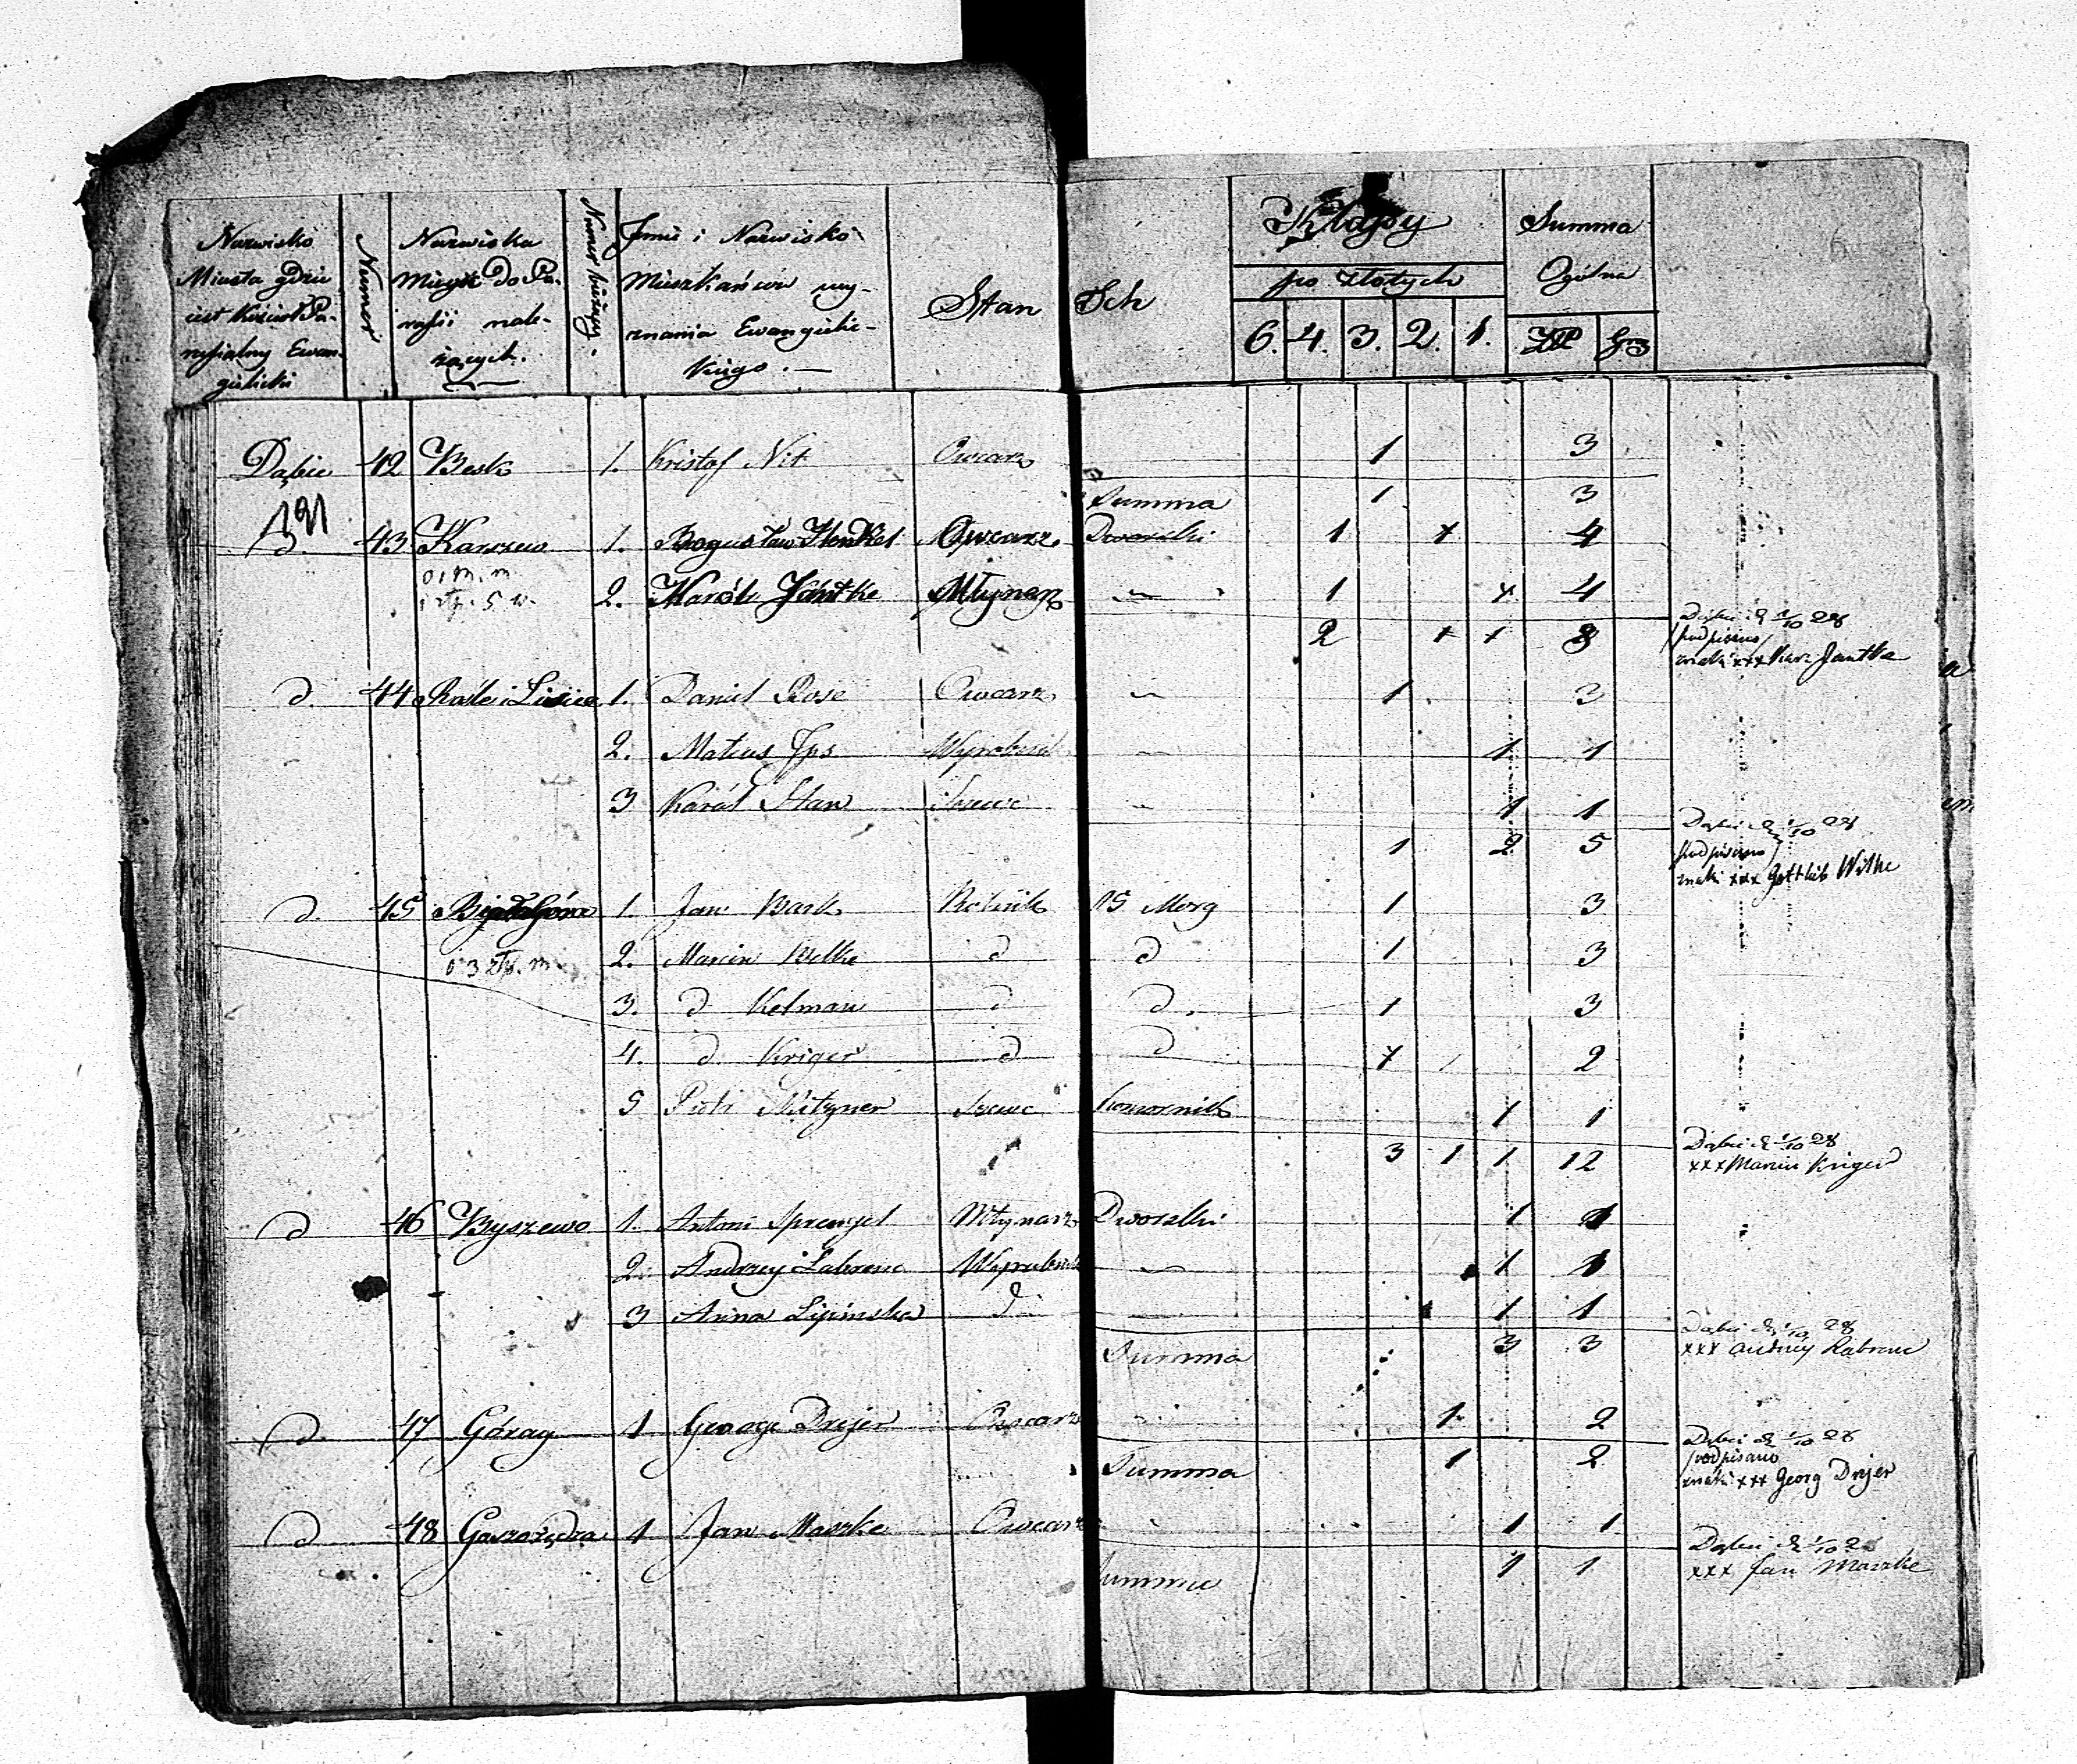 Nazwisko Miasta gdzie jest Kościół Parafialny Ewangielicki
Numer
Nazwiska Mieysc do Parafii należących.
Numer bieżący.
Jmie i Nazwisko Mieszkańców wyznania Ewangielickiego.
Stan
Sch
Klassy
po złotych
6. 4. 3. 2. 1.
Summa Ogólna
ZłP Gro
Dąbie 42 Besk 1. Kristof Nit Owcarz 1 3
Summa 1 3
d. 43 Karszew 1. Bogusław Henkel Owcarz Dworski 1 x 4
2. Karól Jantke Młynarz 1 x 4
2 x x 8
Dąbie d. 1/10 28
podpisano
znaki xxx Kar. Jantke
d. 44 Rośle i Lisice 1. Daniel Rose Owcarz 1 3
2. Mateus Jps Wyrobnik 1 1
3 Karól Stan Szewc 1 1
1 2 5
Dąbie d. 1/10 28
podpisano
znaki xxx Gottlieb Wilke
d. 45 Białagóra 1. Jan Bark Rolnik 15 Morg 1 3
2. Marcin Belke d d 1 3
3. d Kelman d d. 1 3
4. d Kriger d d x 2
5 Piotr Nitzner Szewc Komornik 1 1
3 1 1 12
Dąbie d. 1/10 28
xxx Marcin Kriger
d 46 Byszewo 1. Antoni Sprengel Młynarz Dworski 1 1
2. Andrzey Labrenc Wyrobnik 1 1
3 Anna Lipinska d 1 1
Summa 3 3
Dąbie d. 1/10 28
xxx Andrzey Labrenc
d. 47 Góray 1 George Drejer Owcarz 1 2
Summa 1 2
Dąbie d. 1/10 28
podpisano
znaki xxx Georg Drejer
d 48 Gaszorzędza 1 Jan Maszke Owcarz 1 1
Summa 1 1
Dąbie d. 1/10 28
xxx Jan Maszke